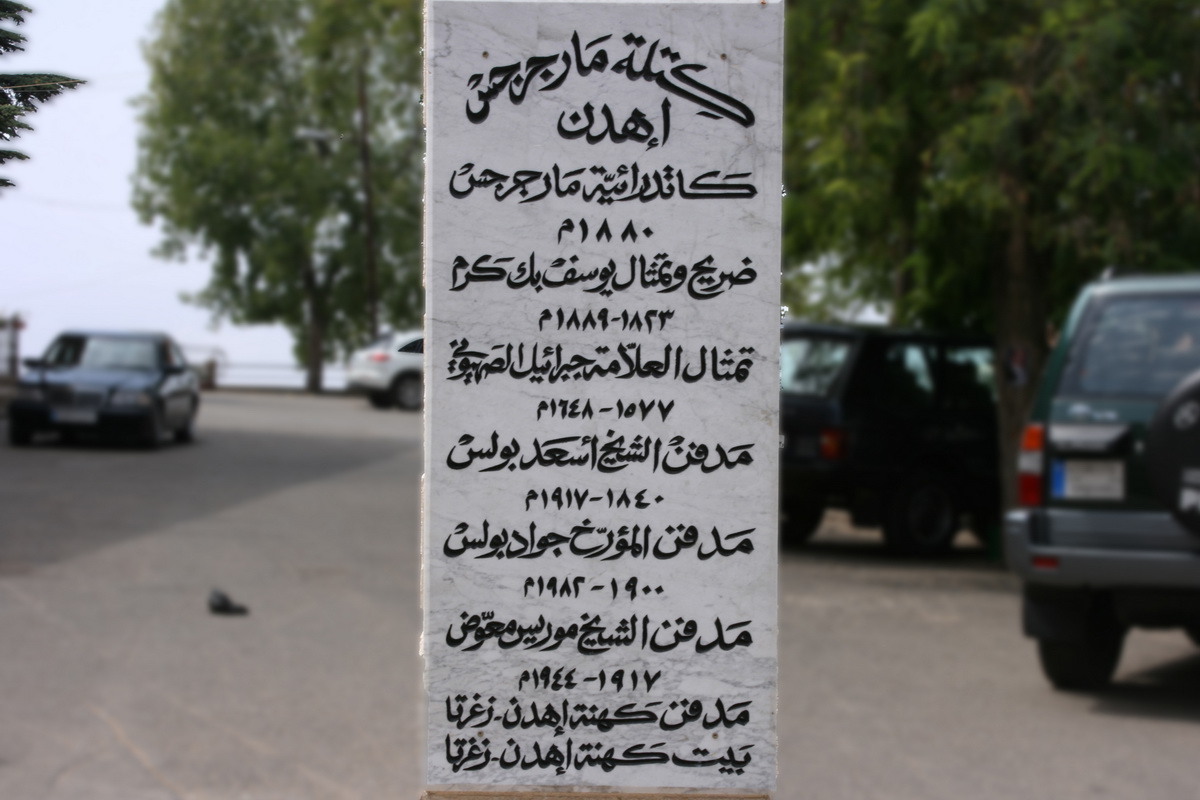 كتلة مَار جرجسْ
إهدن
كَاتدرائيّة مَار جرجسْ
١٨٨٠م
ضريح وتمثال يوسفْ بك كَرم
١٨٢٣-١٨٨٩م
تمثال العلاّمة جبرائيل الصّهيوني
١٥٧٧-١٦٤٨م
مَدفنْ الشيخ أسْعَد بولسْ
١٨٤٠-١٩١٧م
مَدفن المؤرّخ جواد بولسْ
١٩٠٠-١٩٨٢م
مَدفن الشيخ موريس معوّض
١٩١٧-١٩٤٤م
مَدفن كَهنة إهدن-زغرتا
بَيت كَهنة إهدن-زغرتا